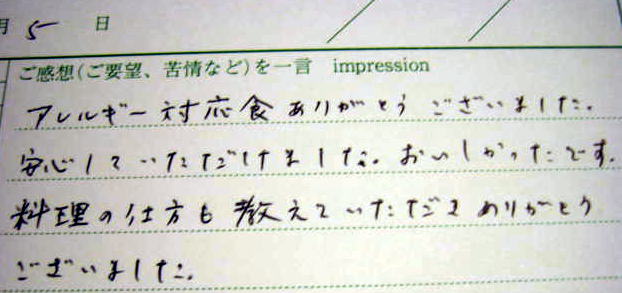 月 5 日
ご感想(ご要望、苦情など)を一言 impression
アレルギー対応食ありがとうございました。
安心していただけました。おいしかったです。
料理の仕方も教えていただきありがとう
ございました。